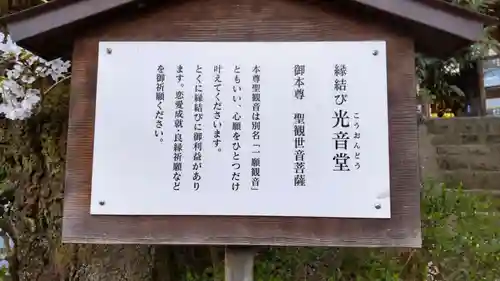 縁結び光音堂
こうおんどう
御本尊 聖観世音菩薩
本尊聖観音は別名「一願観音」
ともいい、心願をひとつだけ
叶えてくださいます。
とくに縁結びに御利益があり
ます。恋愛成就・良縁祈願など
を御祈願ください。